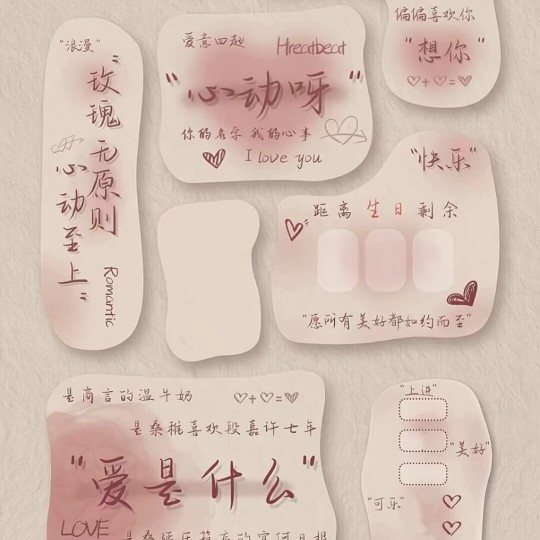 "浪漫"
"玫瑰无原则
心动至上"
Romantic
爱意四起
Hreatbeat
"心动呀"
你的名字 我的心事
I love you
偏偏喜欢你
"想你"
"快乐"
距离生日剩余
"愿所有美好都如约而至"
是商言的温牛奶
是桑稚喜欢段嘉许七年
"爱是什么"
LOVE
"上进"
"美好"
"可乐"